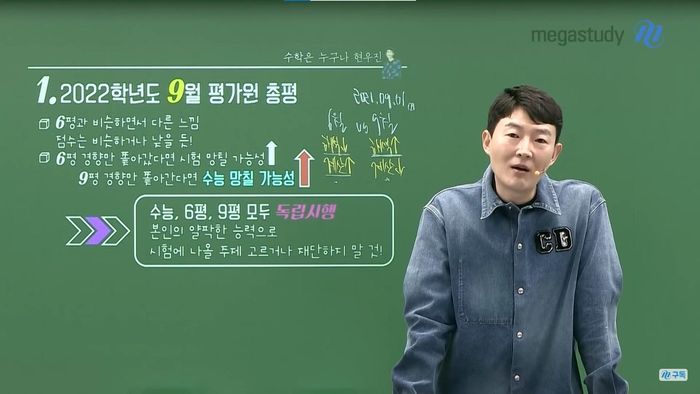 megastudy
수학은 누구나 현우진
1. 2022학년도 9월 평가원 총평
2021.09.01
6평과 비슷하면서 다른 느낌
점수는 비슷하거나 낮을 듯!
6평 경향만 좇아갔다면 시험 망칠 가능성
9평 경향만 좇아간다면 수능 망칠 가능성
6월 vs 9월
계산↓ 계산↓
수능, 6평, 9평 모두 독립시행
본인의 얄팍한 능력으로
시험에 나올 주제 고르거나 재단하지 말 것!
CD
구독